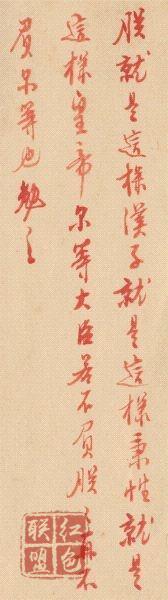 朕就是這樣漢子就是這樣秉性就是
這樣皇帝尔等大臣若不負朕朕再不
負尔等也勉之
红包
联盟